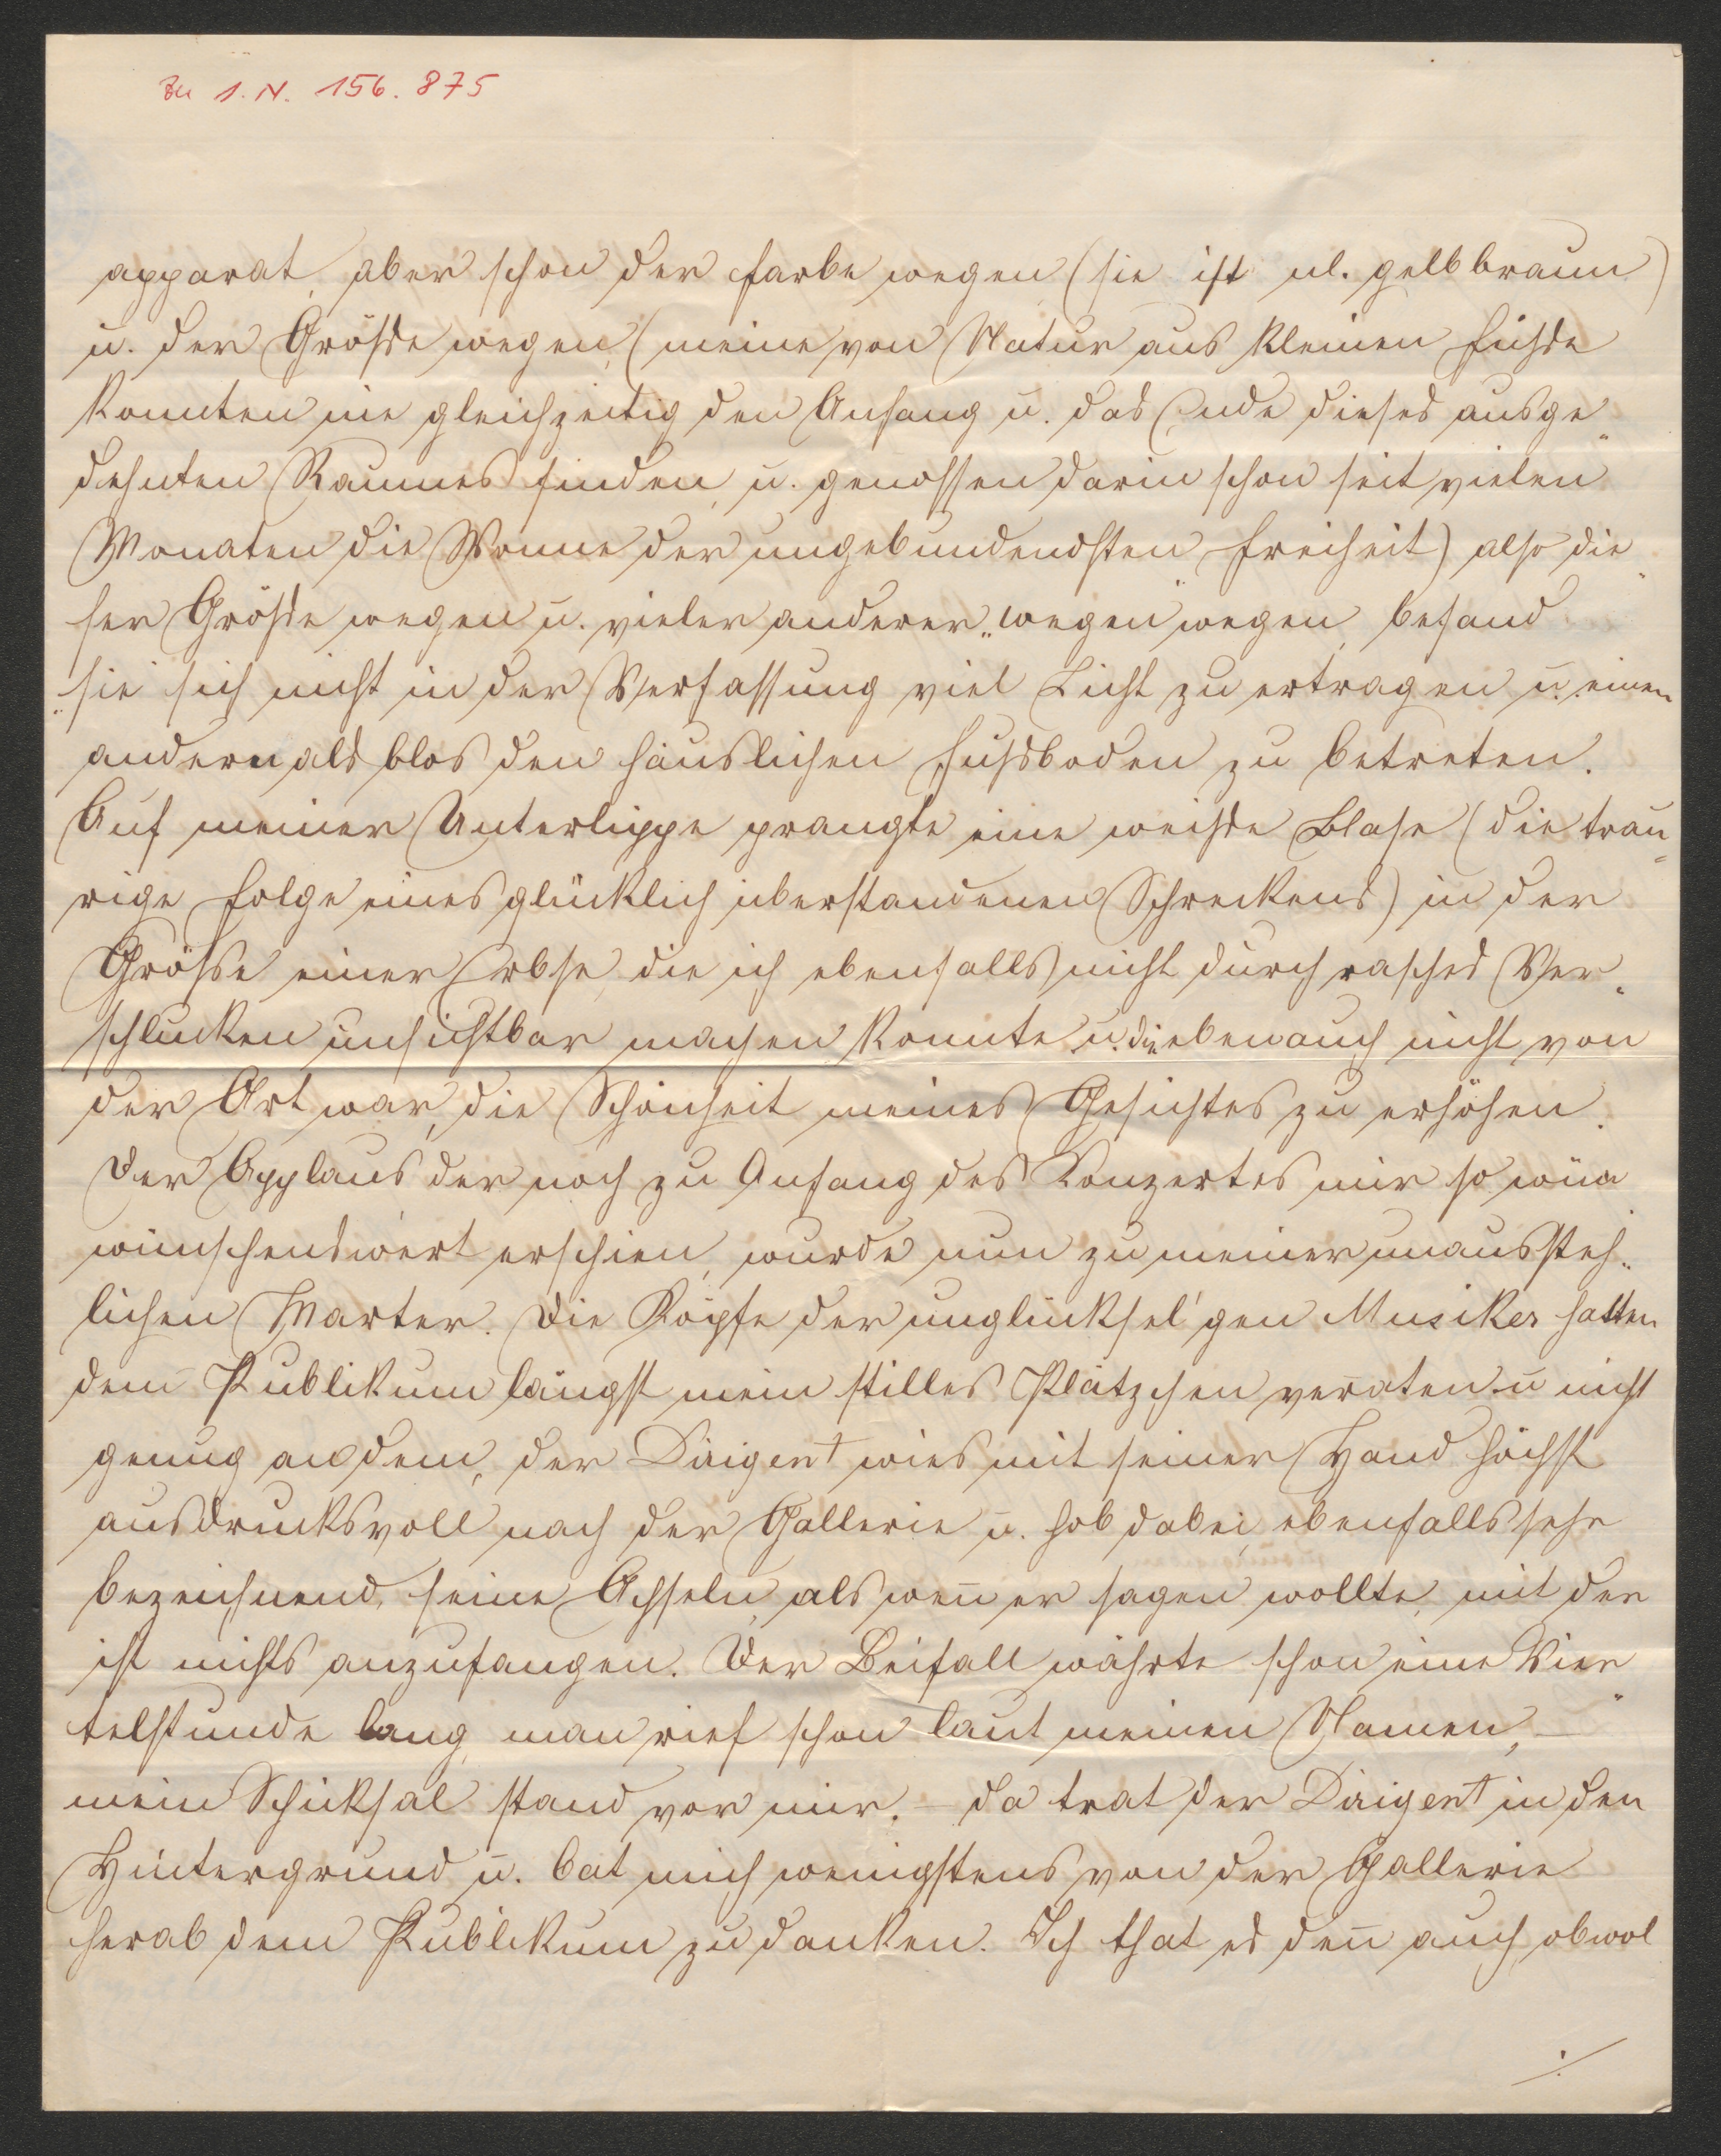 Zu I. N. 156.875
apparat, aber schon der Farbe wegen (sie ist nl. gelbbraun)
u. der Größe wegen, (meine von Natur aus kleinen Füße
konnten nie gleichzeitig den Anfang u. das Ende dieses ausge-
dehnten Raumes finden, u. genossen darin schon seit vielen
Monaten die Wonne der ungebundendsten Freiheit) also die-
ser Größe wegen u. vieler anderer „wegen“ wegen, befand
sie sich nicht in der Verfassung viel Licht zu ertragen u. einen
andern als blos den häuslichen Fußboden zu betreten.
Auf meiner Unterlippe prangte eine weiße Blase (die trau-
rige Folge eines glücklich überstandenen Schreckens) in der
Größe einer Erbse, die ich ebenfalls nicht durch rasches Ver-
schlucken unsichtbar machen konnte u. die eben auch nicht von
der Art war, die Schönheit meines Gesichtes zu erhöhen.
Der Applaus der noch zu Anfang des Konzertes mir so wün
wünschenswert erschien, wurde nun zu meiner unaussteh-
lichen Marter. Die Köpfe der unglücksel'gen Musiker hatten
dem Publikum längst mein stilles Plätzchen verraten u. nicht
genug an dem, der Dirigent wies mit seiner Hand höchst
ausdrucksvoll nach der Gallerie u. hob dabei, ebenfalls sehr
bezeichnend, seine Achseln, als weñ er sagen wollte, mit der
ist nichts anzufangen. Der Beifall währte schon eine Vier-
telstunde lang, man rief schon laut meinen Namen, –
mein Schicksal stand vor mir. – da trat der Dirigent in den
Hintergrund u. bat mich wenigstens von der Gallerie
herab dem Publikum zu danken. Ich that es deñ auch, obwol
./.